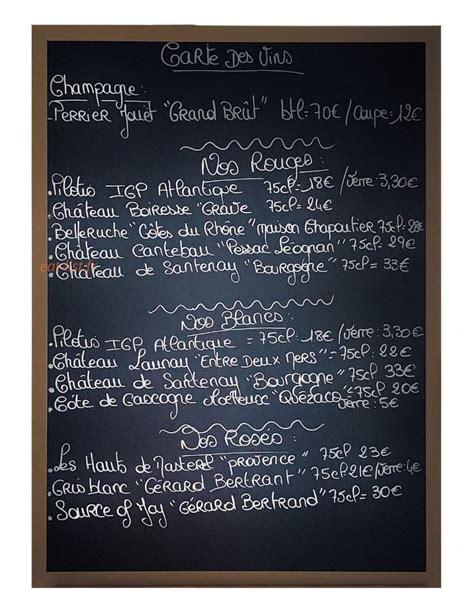 Carte Des Vins
Champagne:
-Perrier Jouët "Grand Brût" btl=70€ / Coupe=12€
Nos Rouges:
.Pilotis IGP Atlantique 75cl=18€ / Verre:3,30€
.Château Boiresse "Grave" 75cl=24€
.Belleruche "Côtes du Rhône" maison Chapoutier 75cl=28€
.Château Cantebau "Pessac Léognan" 75cl. 29€
.Château de Santenay "Bourgogne" 75cl=33€
Nos Blancs:
.Pilotis IGP Atlantique = 75cl. 18€ / Verre:3,30€
.Château Launay "Entre Deux Mers"=75cl. 22€
.Château de Santenay "Bourgogne" 75cl 33€
.Côte de Gascogne Moelleux "Quézaco" 75cl 20€
Verre:5€
Nos Rosés:
.Les Hauts de "provence" 75cl 23€
.Gris blanc "Gérard Bertrant" 75cl 21€/Verre:4€
.Source of Joy "Gérard Bertrand" 75cl=30€